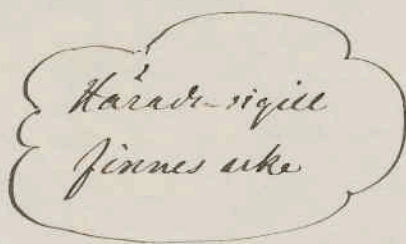 Härads-sigill
finnes icke